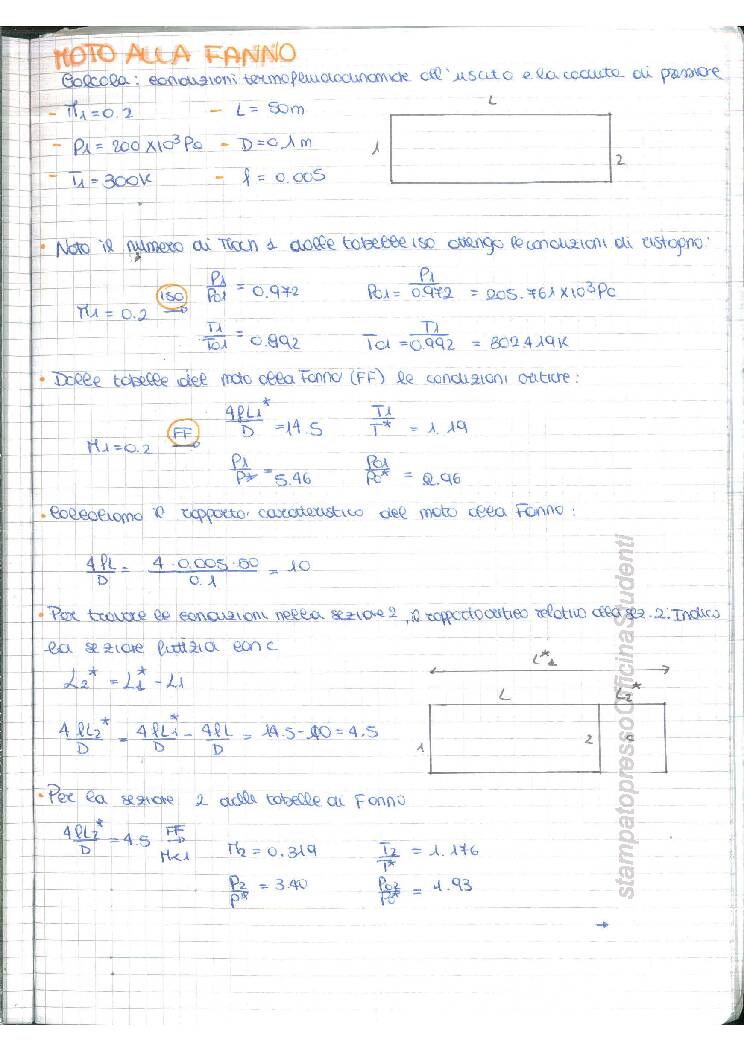 MOTO ALLA FANNO
Calcola: condizioni termofluidodinamiche all'uscita e la caduta di pressione
- M1 = 0.2 - L = 50m
- P1 = 200 x10³ Pa - D = 0.1 m
- T1 = 300K - f = 0.005
L
1
2
• Noto il numero di Mach 1 dalle tabelle iso ottengo le condizioni di ristagno:
M1 = 0.2 ISO → P1/P01 = 0.972 P01 = P1/0.972 = 205.761 x10³ Pa
T1/T01 = 0.992 T01 = T1/0.992 = 302.419K
• Dalle tabelle del moto alla Fanno (FF) le condizioni critiche:
M1 = 0.2 FF → 4fL1*/D = 14.5 T1/T* = 1.19
P1/P* = 5.46 P01/P0* = 2.96
• Calcoliamo il rapporto caratteristico del moto alla Fanno:
4fL/D = 4·0.005·50/0.1 = 10
• Per trovare le condizioni nella sezione 2, il rapporto critico relativo alla sez. 2. Indico
la sezione fittizia con c
L2* = L1* - L1
L*1
L L2*
4fL2*/D = 4fL1*/D - 4fL/D = 14.5 - 10 = 4.5
1 2 c
• Per la sezione 2 dalle tabelle di Fanno
4fL2*/D = 4.5 FF → M<1 M2 = 0.319 T2/T* = 1.176
P2/P* = 3.40 P02/P0* = 1.93
→
stampatopressoOfficinaStudenti